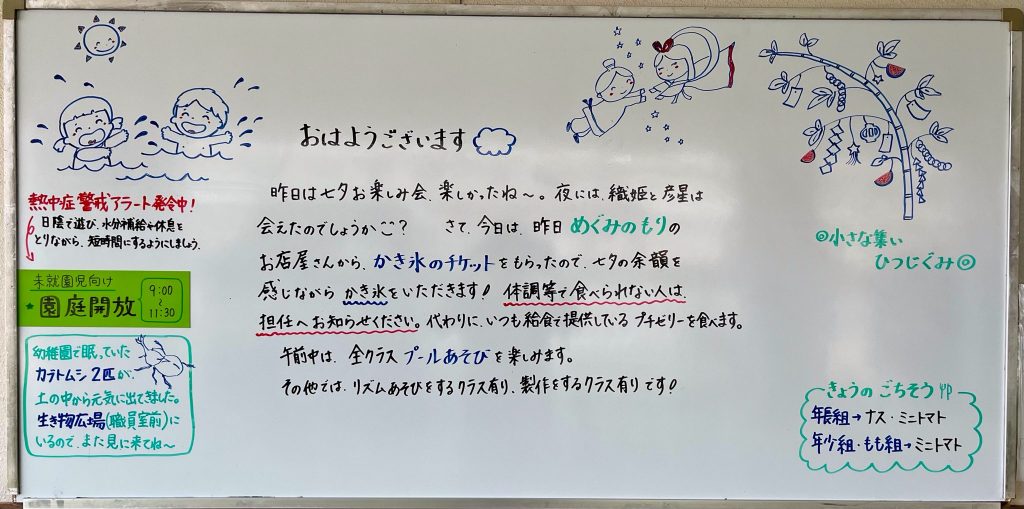 おはようございます
昨日は七夕お楽しみ会、楽しかったね〜。夜には、織姫と彦星は
会えたのでしょうか？ さて、今日は、昨日めぐみのもりの
お店屋さんから、かき氷のチケットをもらったので、七夕の余韻を
感じながら かき氷をいただきます！ 体調等で食べられない人は、
担任へお知らせください。代わりに、いつも給食で提供しているプチゼリーを食べます。
午前中は、全クラス プールあそびを楽しみます。
その他では、リズムあそびをするクラス有り、製作をするクラス有りです！
熱中症警戒アラート発令中！
日陰で遊び、水分補給や休息を
とりながら、短時間にするようにしましょう。
未就園児向け
★園庭開放
9:00
〜
11:30
幼稚園で眠っていた
カブトムシ2匹が、
土の中から元気に出てきました。
生き物広場(職員室前)に
いるので、また見に来てね〜
◎小さな集い
ひつじぐみ◎
きょうの ごちそう
年長組→ナス・ミニトマト
年少組・もも組→ミニトマト